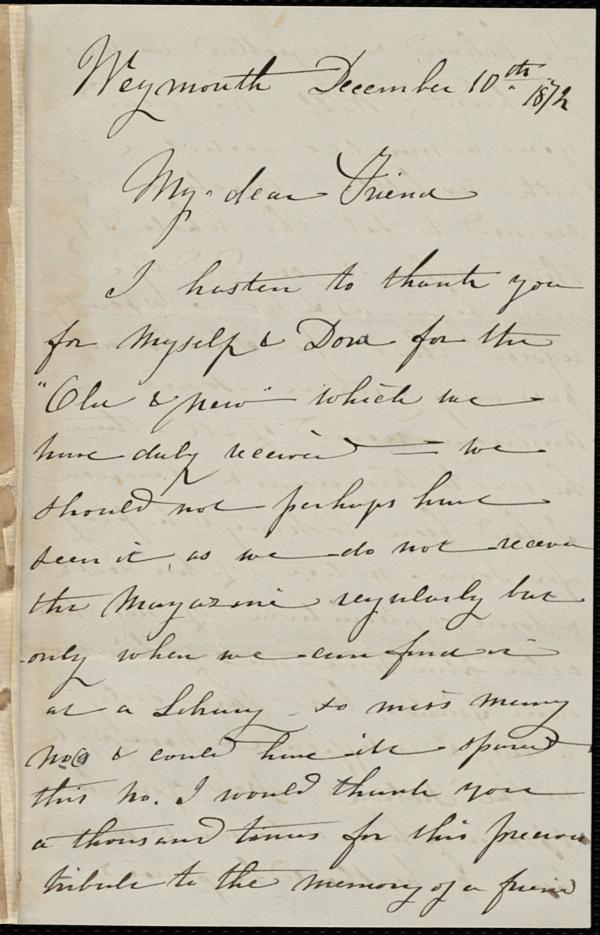 Weymouth December 10th 1872
My dear Friend
I hasten to thank you
for myself & Dora for the
"Old & New" which we
have duly received = we
should not perhaps have
seen it, as we do not receive
the Magazine regularly but
only when we can find it
at a Library - so miss many
nos & could have ill spared
this no. I would thank you
a thousand times for this precious
tribute to the memory of a friend